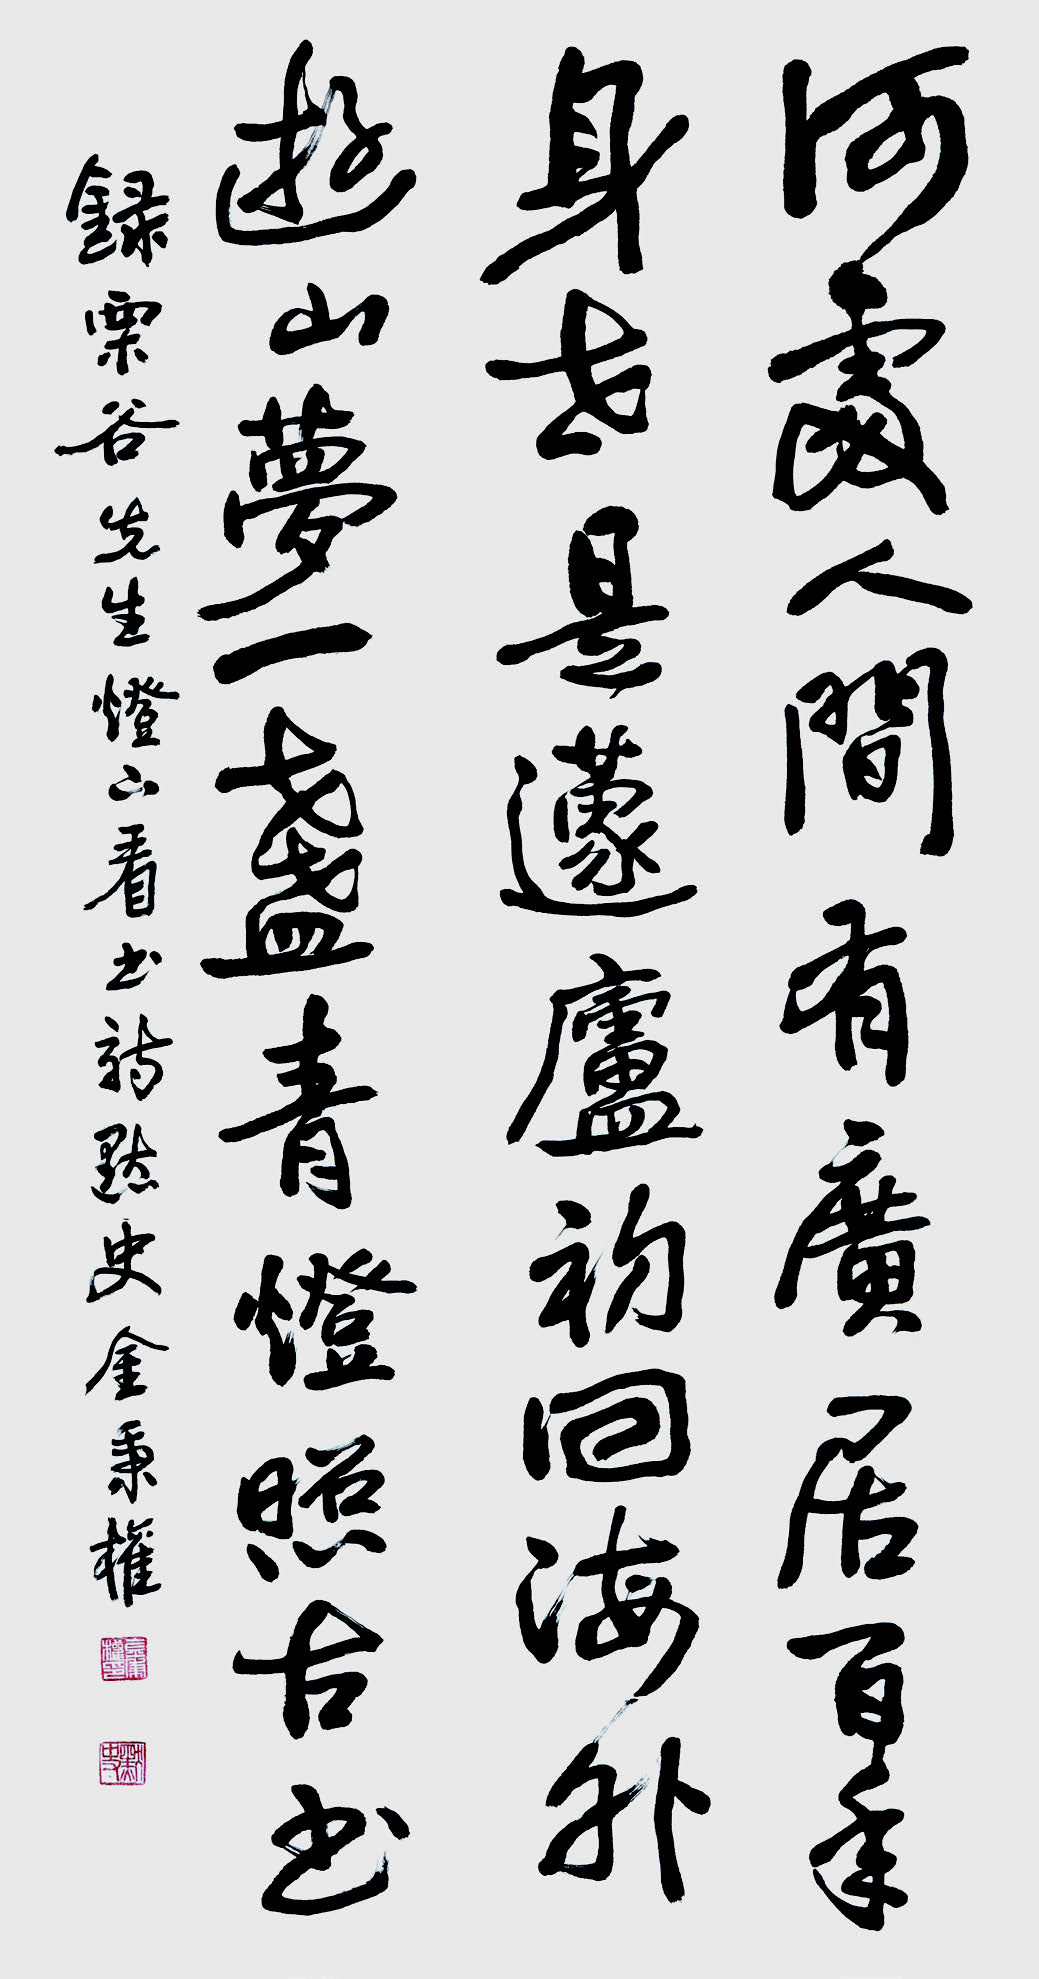 何處人間有廣居百年
身世是蘧廬初回海外
遊山夢一盞青燈照古書
録栗谷先生燈下看書詩默史金秉權